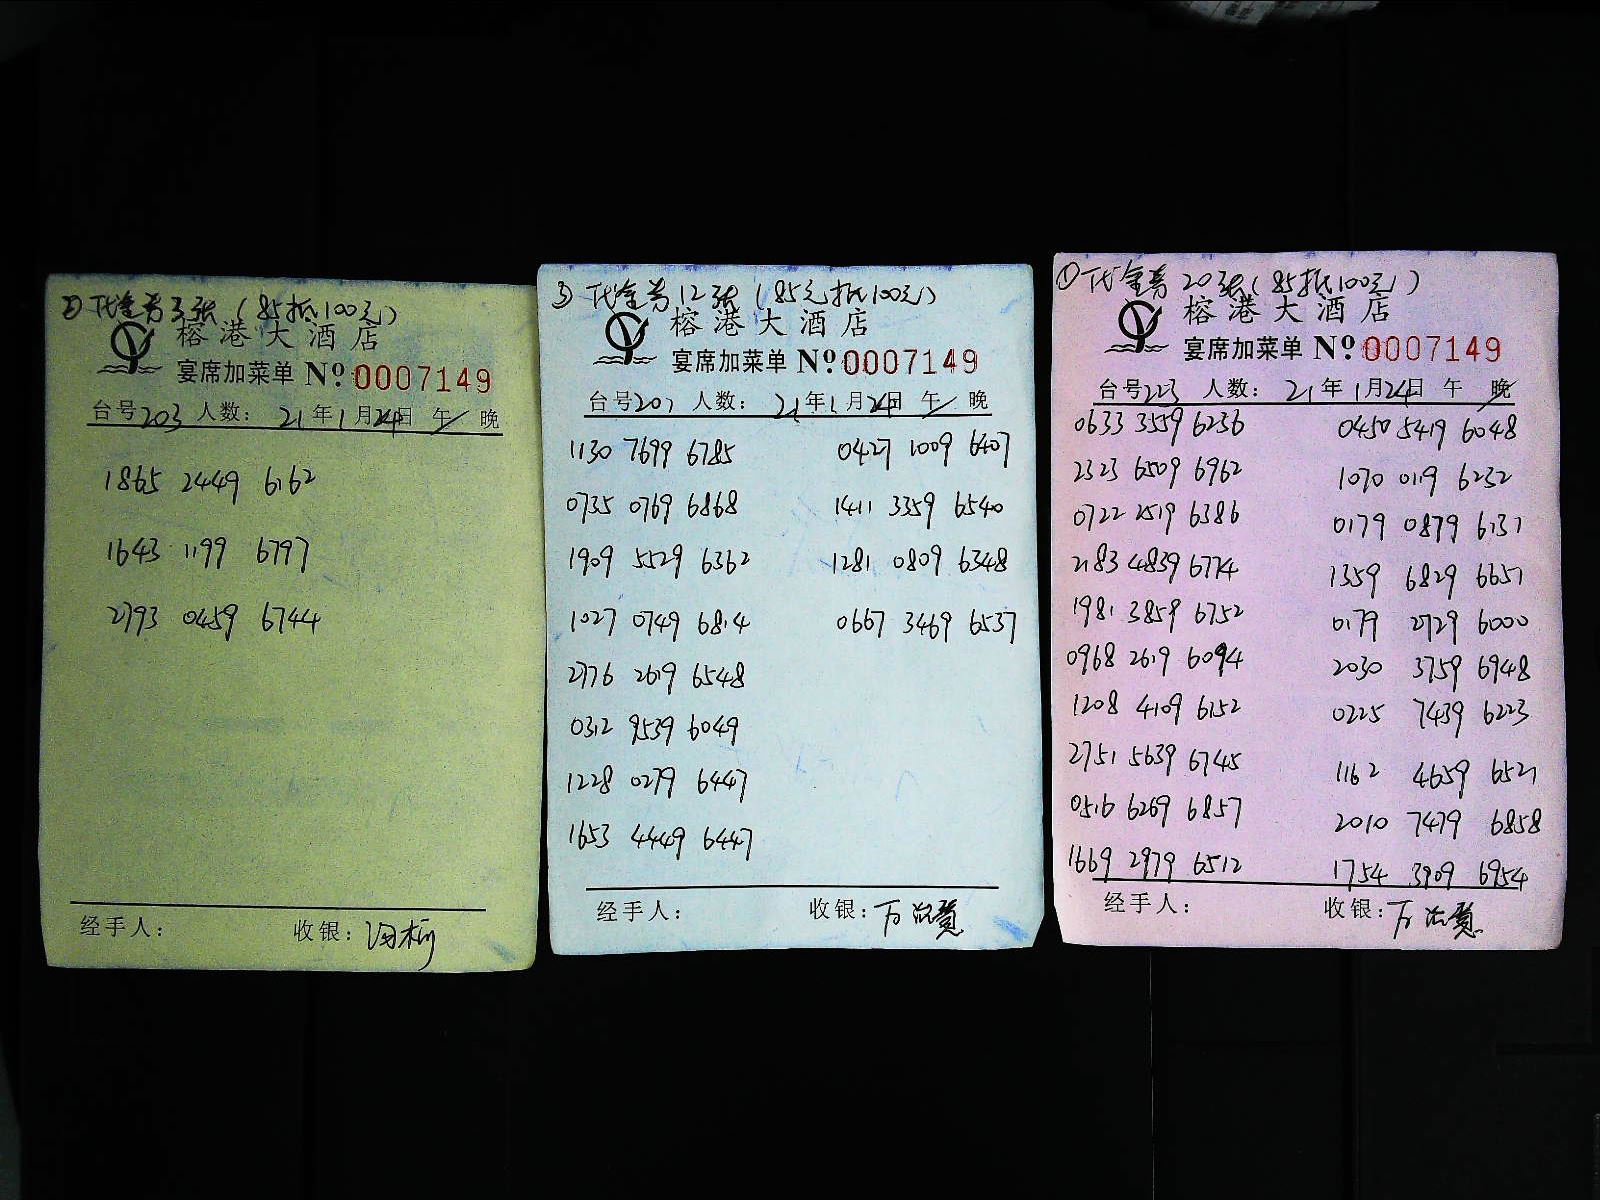 ② 代金券3张(85抵100元)
榕港大酒店
宴席加菜单 Nº 0007149
台号203 人数: 21年1月24日 午 晚
1865 2449 6162
1643 1199 6797
2793 0459 6744
经手人:
收银:
③ 代金券12张(85元抵100元)
榕港大酒店
宴席加菜单 Nº 0007149
台号207 人数: 21年1月24日 午 晚
1130 7699 6785 0427 1009 6407
0735 0769 6868 1411 3359 6540
1909 5529 6362 1281 0809 6348
1027 0749 6814 0667 3469 6537
2776 2619 6548
0312 9539 6049
1228 0279 6447
1653 4449 6447
经手人:
收银:
① 代金券20张(85抵100元)
榕港大酒店
宴席加菜单 Nº 0007149
台号223 人数: 21年1月24日 午 晚
0633 3559 6236 0450 5419 6048
2323 6509 6962 1070 0119 6232
0722 2519 6386 0179 0879 6131
2183 4839 6774 1359 6829 6651
1981 3859 6752 0179 2729 6000
0968 2619 6094 2030 3759 6948
1208 4109 6152 0225 7439 6223
2751 5639 6745 1162 4659 6521
0516 6269 6857 2010 7479 6858
1669 2979 6512 1754 3909 6954
经手人:
收银: